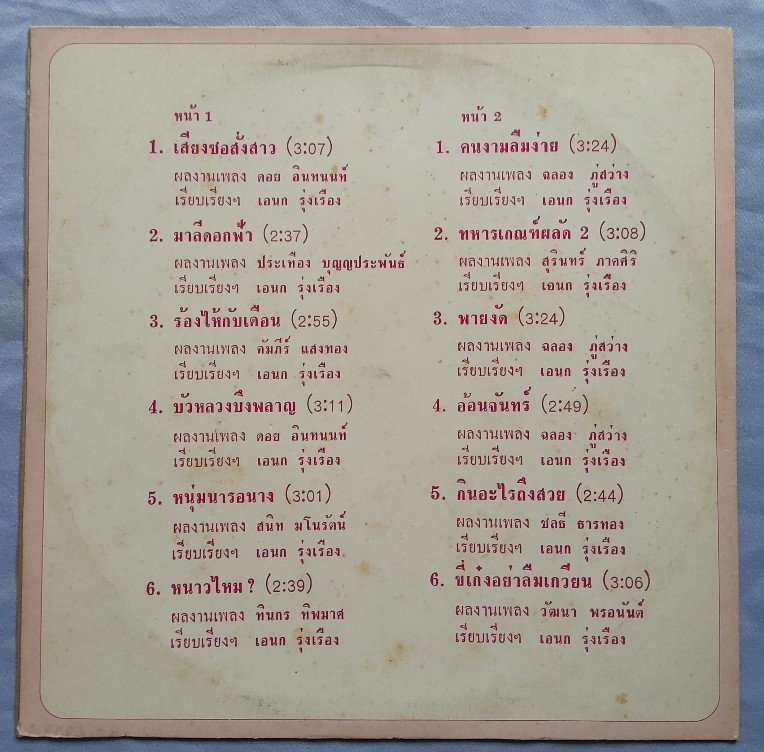 หน้า 1
1. เสียงซอสั่งสาว (3:07)
ผลงานเพลง ดอย อินทนนท์
เรียบเรียงฯ เอนก รุ่งเรือง
2. มาลีดอกฟ้า (2:37)
ผลงานเพลง ประเทือง บุญญประพันธ์
เรียบเรียงฯ เอนก รุ่งเรือง
3. ร้องไห้กับเดือน (2:55)
ผลงานเพลง คัมภีร์ แสงทอง
เรียบเรียงฯ เอนก รุ่งเรือง
4. บัวหลวงบึงพลาญ (3:11)
ผลงานเพลง ดอย อินทนนท์
เรียบเรียงฯ เอนก รุ่งเรือง
5. หนุ่มนารอนาง (3:01)
ผลงานเพลง สนิท มโนรัตน์
เรียบเรียงฯ เอนก รุ่งเรือง
6. หนาวไหม ? (2:39)
ผลงานเพลง ทินกร ทิพมาศ
เรียบเรียงฯ เอนก รุ่งเรือง
หน้า 2
1. คนงามลืมง่าย (3:24)
ผลงานเพลง ฉลอง ภู่สว่าง
เรียบเรียงฯ เอนก รุ่งเรือง
2. ทหารเกณฑ์ผลัด 2 (3:08)
ผลงานเพลง สุรินทร์ ภาคศิริ
เรียบเรียงฯ เอนก รุ่งเรือง
3. พายงัด (3:24)
ผลงานเพลง ฉลอง ภู่สว่าง
เรียบเรียงฯ เอนก รุ่งเรือง
4. อ้อนจันทร์ (2:49)
ผลงานเพลง ฉลอง ภู่สว่าง
เรียบเรียงฯ เอนก รุ่งเรือง
5. กินอะไรถึงสวย (2:44)
ผลงานเพลง ชลธี ธารทอง
เรียบเรียงฯ เอนก รุ่งเรือง
6. ขี่เก๋งอย่าลืมเกวียน (3:06)
ผลงานเพลง วัฒนา พรอนันต์
เรียบเรียงฯ เอนก รุ่งเรือง